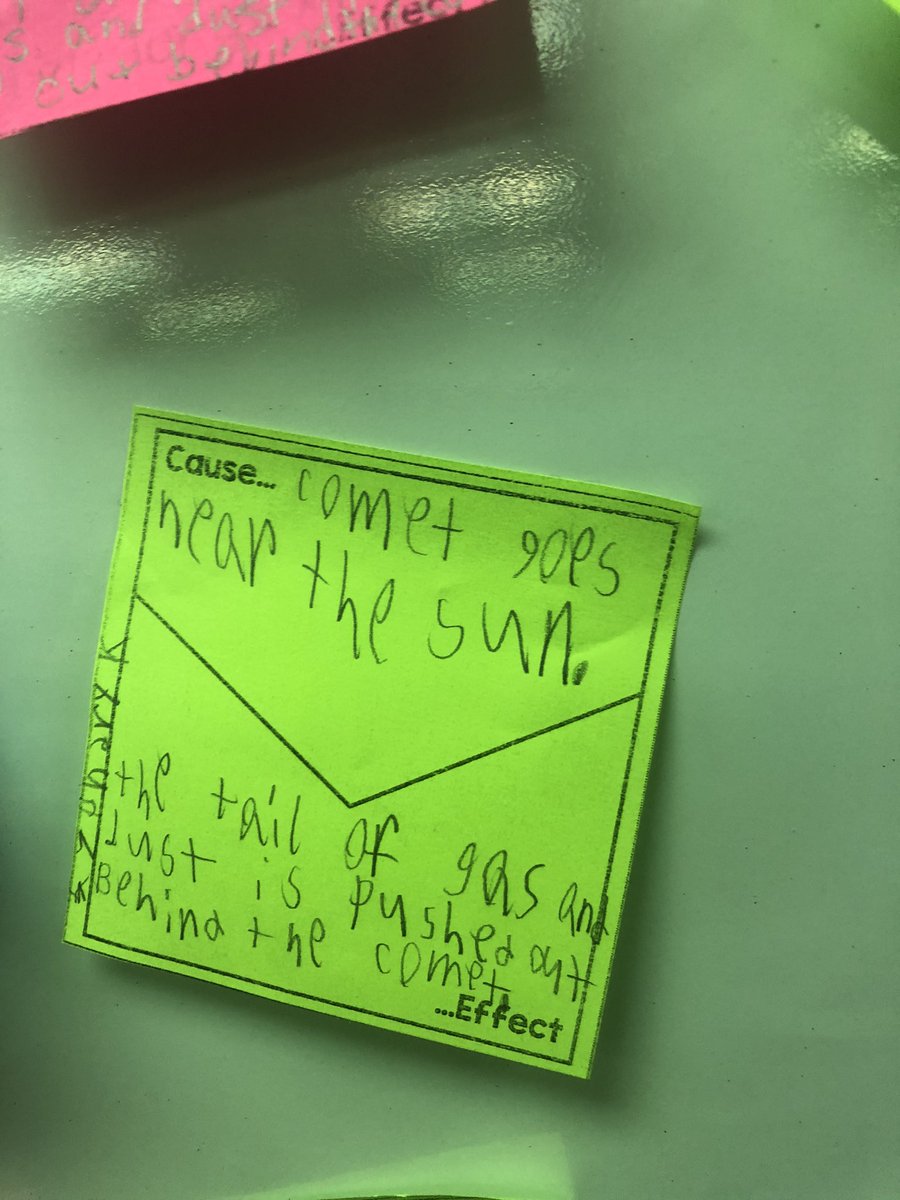 s and dust is
Effect
out behind
Cause... comet goes
near the sun.
the tail of gas and
dust is pushed out
Behind the comet.
...Effect